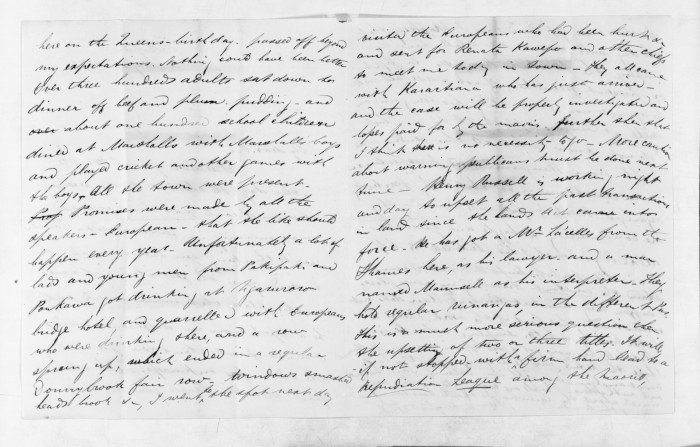 here on the Queens-birthday - passed off beyond
my expectations. Nothing could have been better
Over three hundreds adults sat down to
dinner off beef and plum pudding - and
over about one hundred school children
dined at Marshalls with Marshalls boys
and played cricket and other games with
the boys. All the town were present.
Promises were made by all the
speakers - European - that the like should
happen every year. Unfortunately a lot of
lads and young men from Pakipaki and
Poukawa got drinking at
bridge hotel, and quarrelled with Europeans
who were drinking there, and a row
sprung up, which ended in a regular
Donnybrook fair row, windows smashed
heads broke &c, I went to the spot next day
visited the Europeans who had been hurt &
and sent for Renata Kawepo and other chiefs
to meet me today in town - they all came
with Karaitiana who has just arrived -
and the case will be properly investigated and
losses paid for by the maoris. further than that
I think there is no necessity to go - More caution
about warning publicans must be done next
time - Henry Russell is working night
and day to upset all the past transactions
in land since the lands Act came into
force. He has got a Mr Lascelles from the
Thames here, as his lawyer. and a man
named Maunsell as his interpreter. They
hold regular runangas, in the different Pas.
This is a much more serious question than
the upsetting of two or three titles. It will
if not stopped with a firm hand lead to a
Repudiation League among the Maoris,